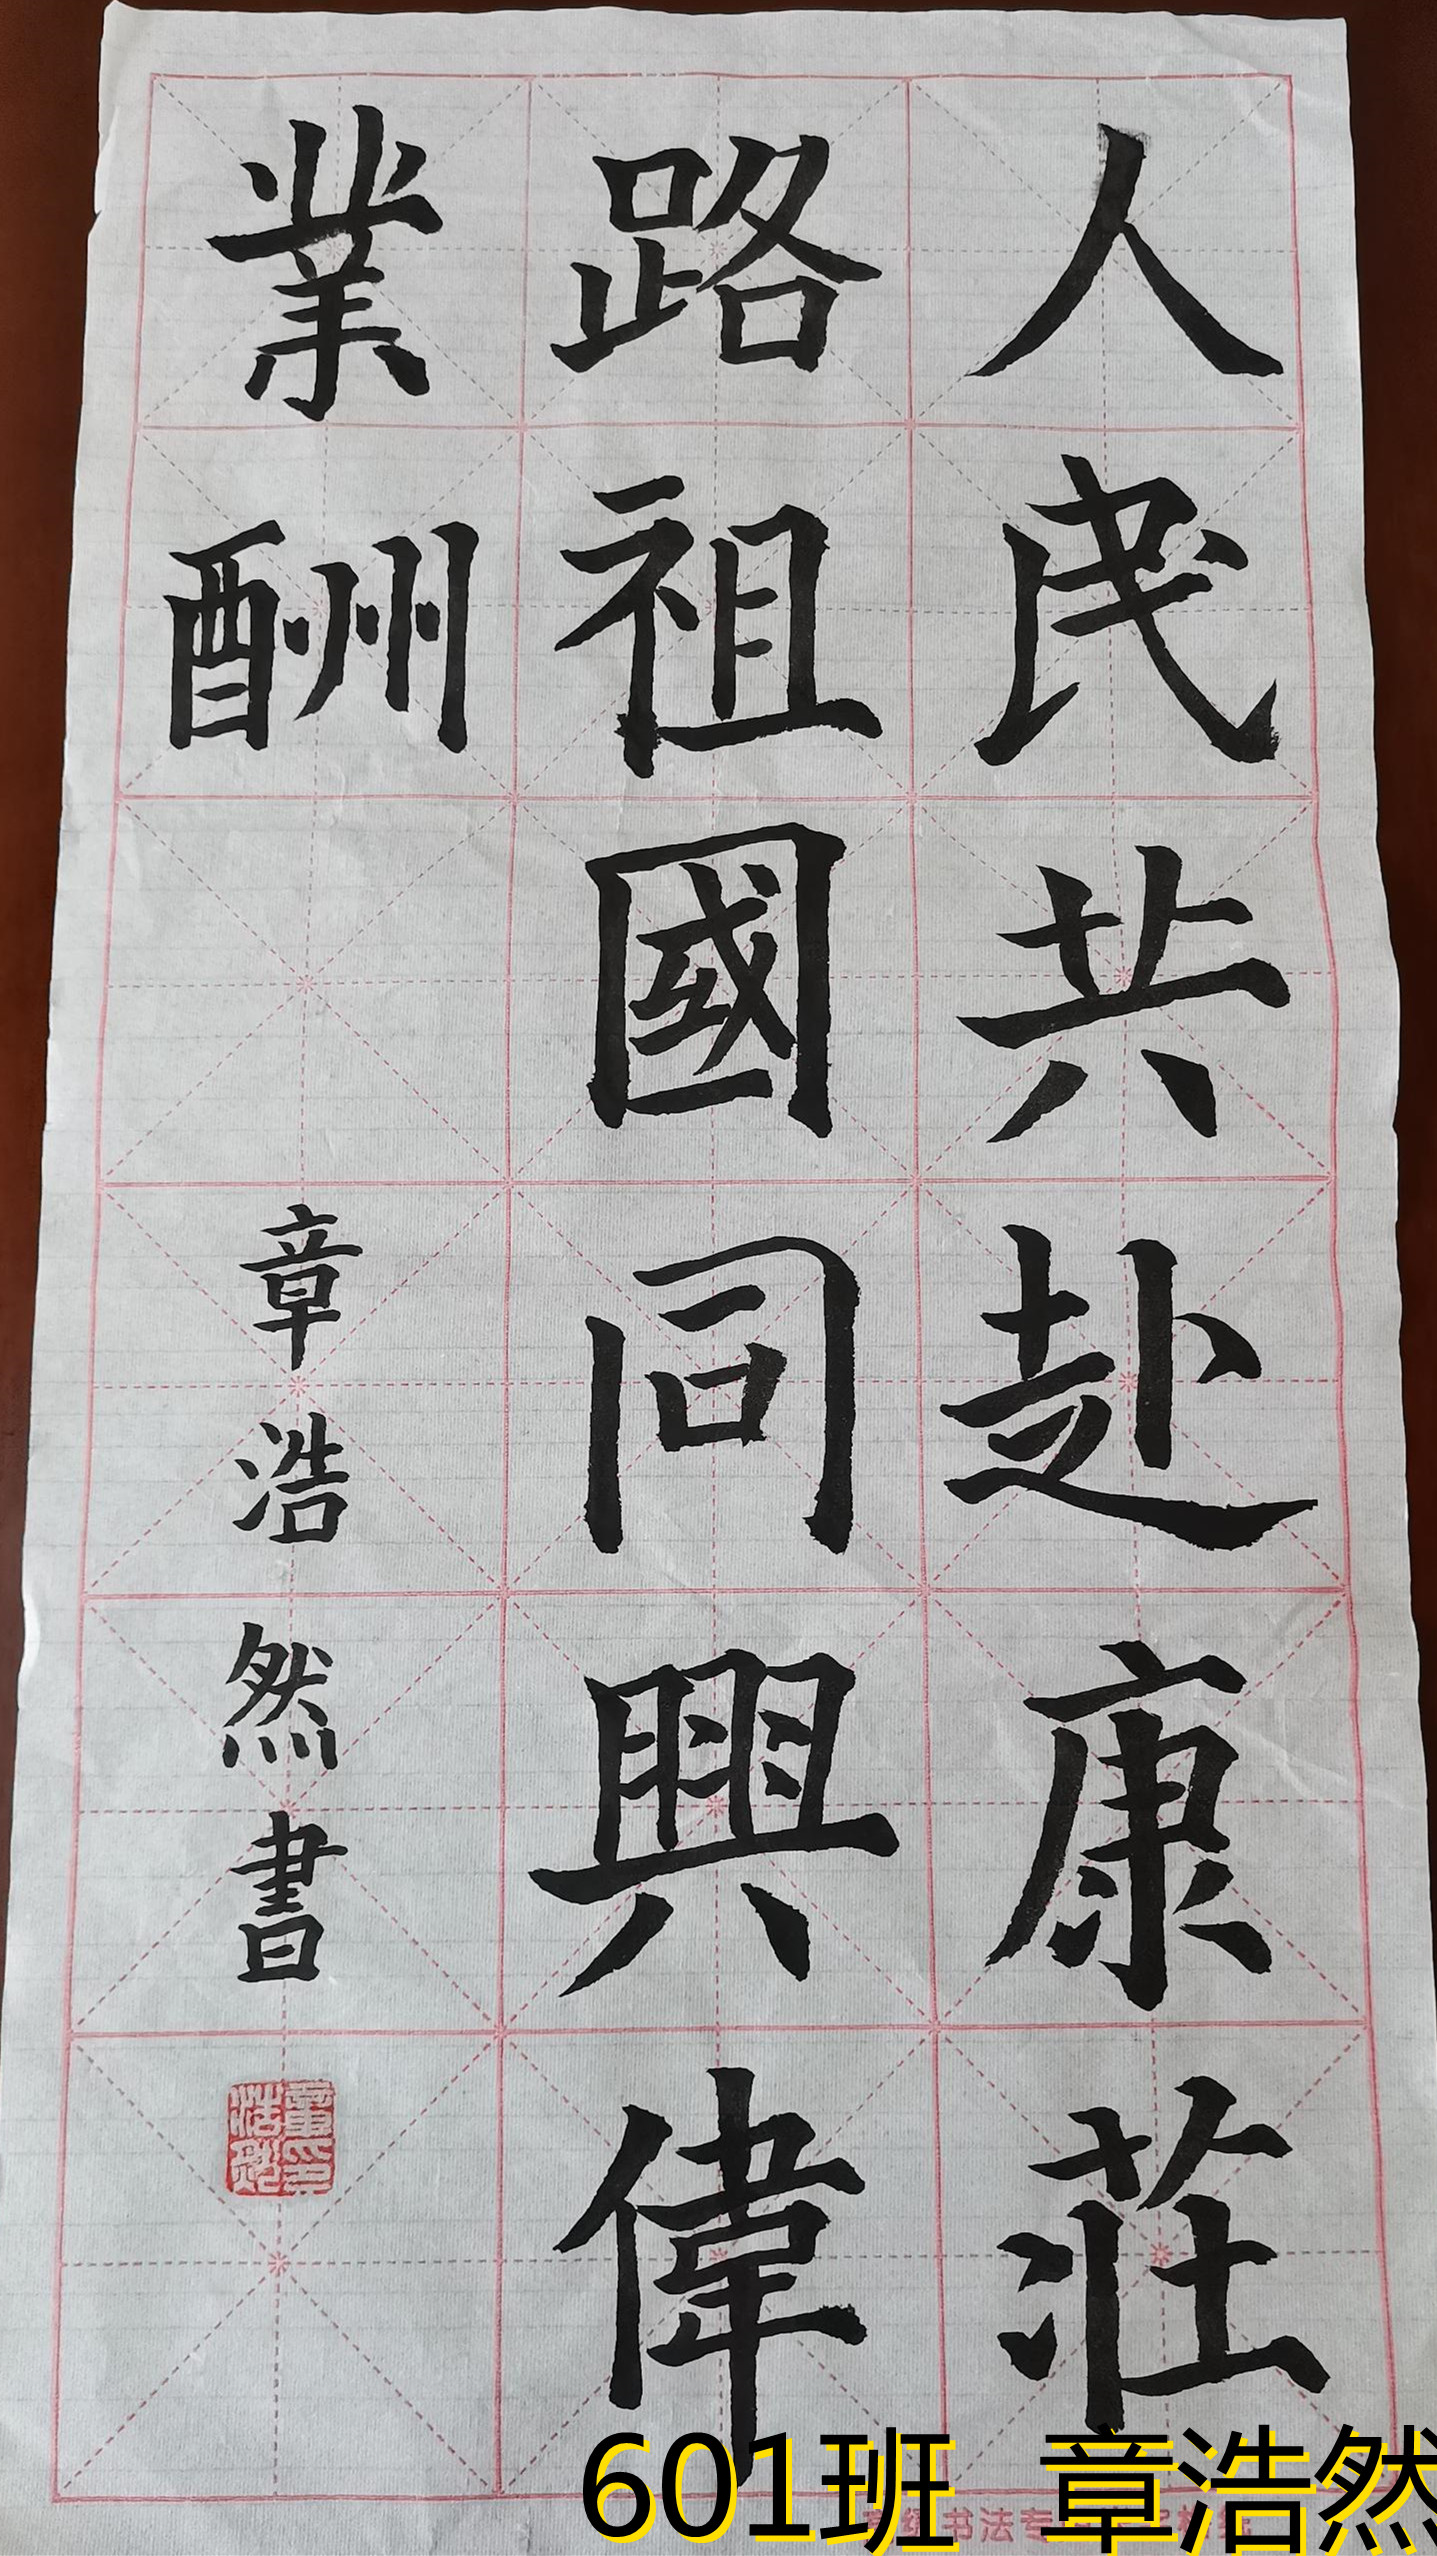 人民共赴康莊
路祖國同興偉
業酬
章浩然書
章印浩然
601班 章浩然